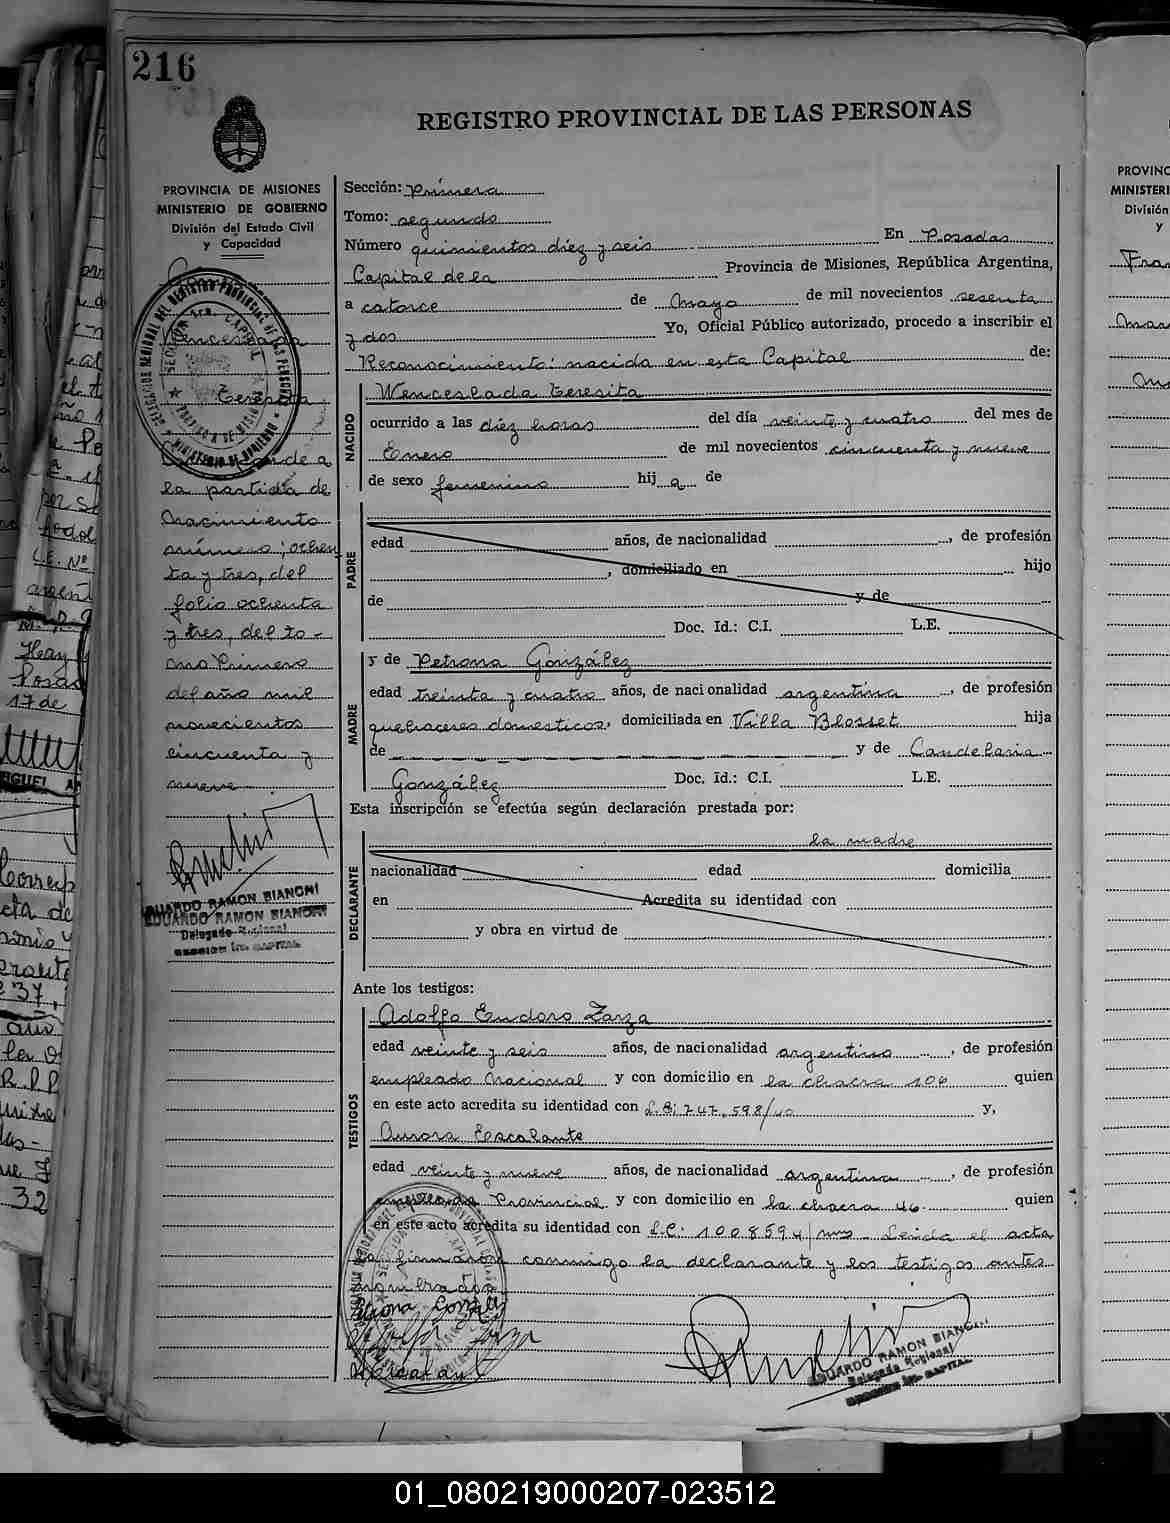 216
REGISTRO PROVINCIAL DE LAS PERSONAS
PROVINCIA DE MISIONES
MINISTERIO DE GOBIERNO
División del Estado Civil
y Capacidad
Wenceslada
Teresita
Corresponde a
la partida de
Nacimiento
número; ochen
ta y tres, del
folio ochenta
y tres, del to-
mo Primero
del año mil
novecientos
cincuenta y
nueve
EDUARDO RAMON BIANCHI
EDUARDO RAMON BIANCHI
Delegado Regional
SECCION 1ra. CAPITAL
Sección: Primera
Tomo: segundo
Número quinientos diez y seis En Posadas
Capital de la Provincia de Misiones, República Argentina,
a catorce de Mayo de mil novecientos sesenta
y dos Yo, Oficial Público autorizado, procedo a inscribir el
Reconocimiento: nacida en esta Capital de:
NACIDO
Wenceslada Teresita
ocurrido a las diez horas del día veinte y cuatro del mes de
Enero de mil novecientos cincuenta y nueve
de sexo femenino hija de
PADRE
edad años, de nacionalidad , de profesión
, domiciliado en hijo
de y de
Doc. Id.: C.I. L.E.
MADRE
y de Petrona González
edad treinta y cuatro años, de nacionalidad argentina , de profesión
quehaceres domesticos, domiciliada en Villa Blosset hija
de y de Candelaria
González Doc. Id.: C.I. L.E.
Esta inscripción se efectúa según declaración prestada por:
DECLARANTE
la madre
nacionalidad edad domicilia
en Acredita su identidad con
y obra en virtud de
Ante los testigos:
TESTIGOS
Adolfo Eudoro Zarza
edad veinte y seis años, de nacionalidad argentino , de profesión
empleado Nacional y con domicilio en la chacra 106 quien
en este acto acredita su identidad con y,
Aurora Escalante
edad veinte y nueve años, de nacionalidad argentina , de profesión
empleada Provincial y con domicilio en la chacra 46 quien
en este acto acredita su identidad con L.C: Leída el acta
la firmaron conmigo la declarante y los testigos antes
nombrados
Petrona González
Zarza
EDUARDO RAMON BIANCHI
Delegado Regional
SECCION 1ra. CAPITAL
01_080219000207-023512